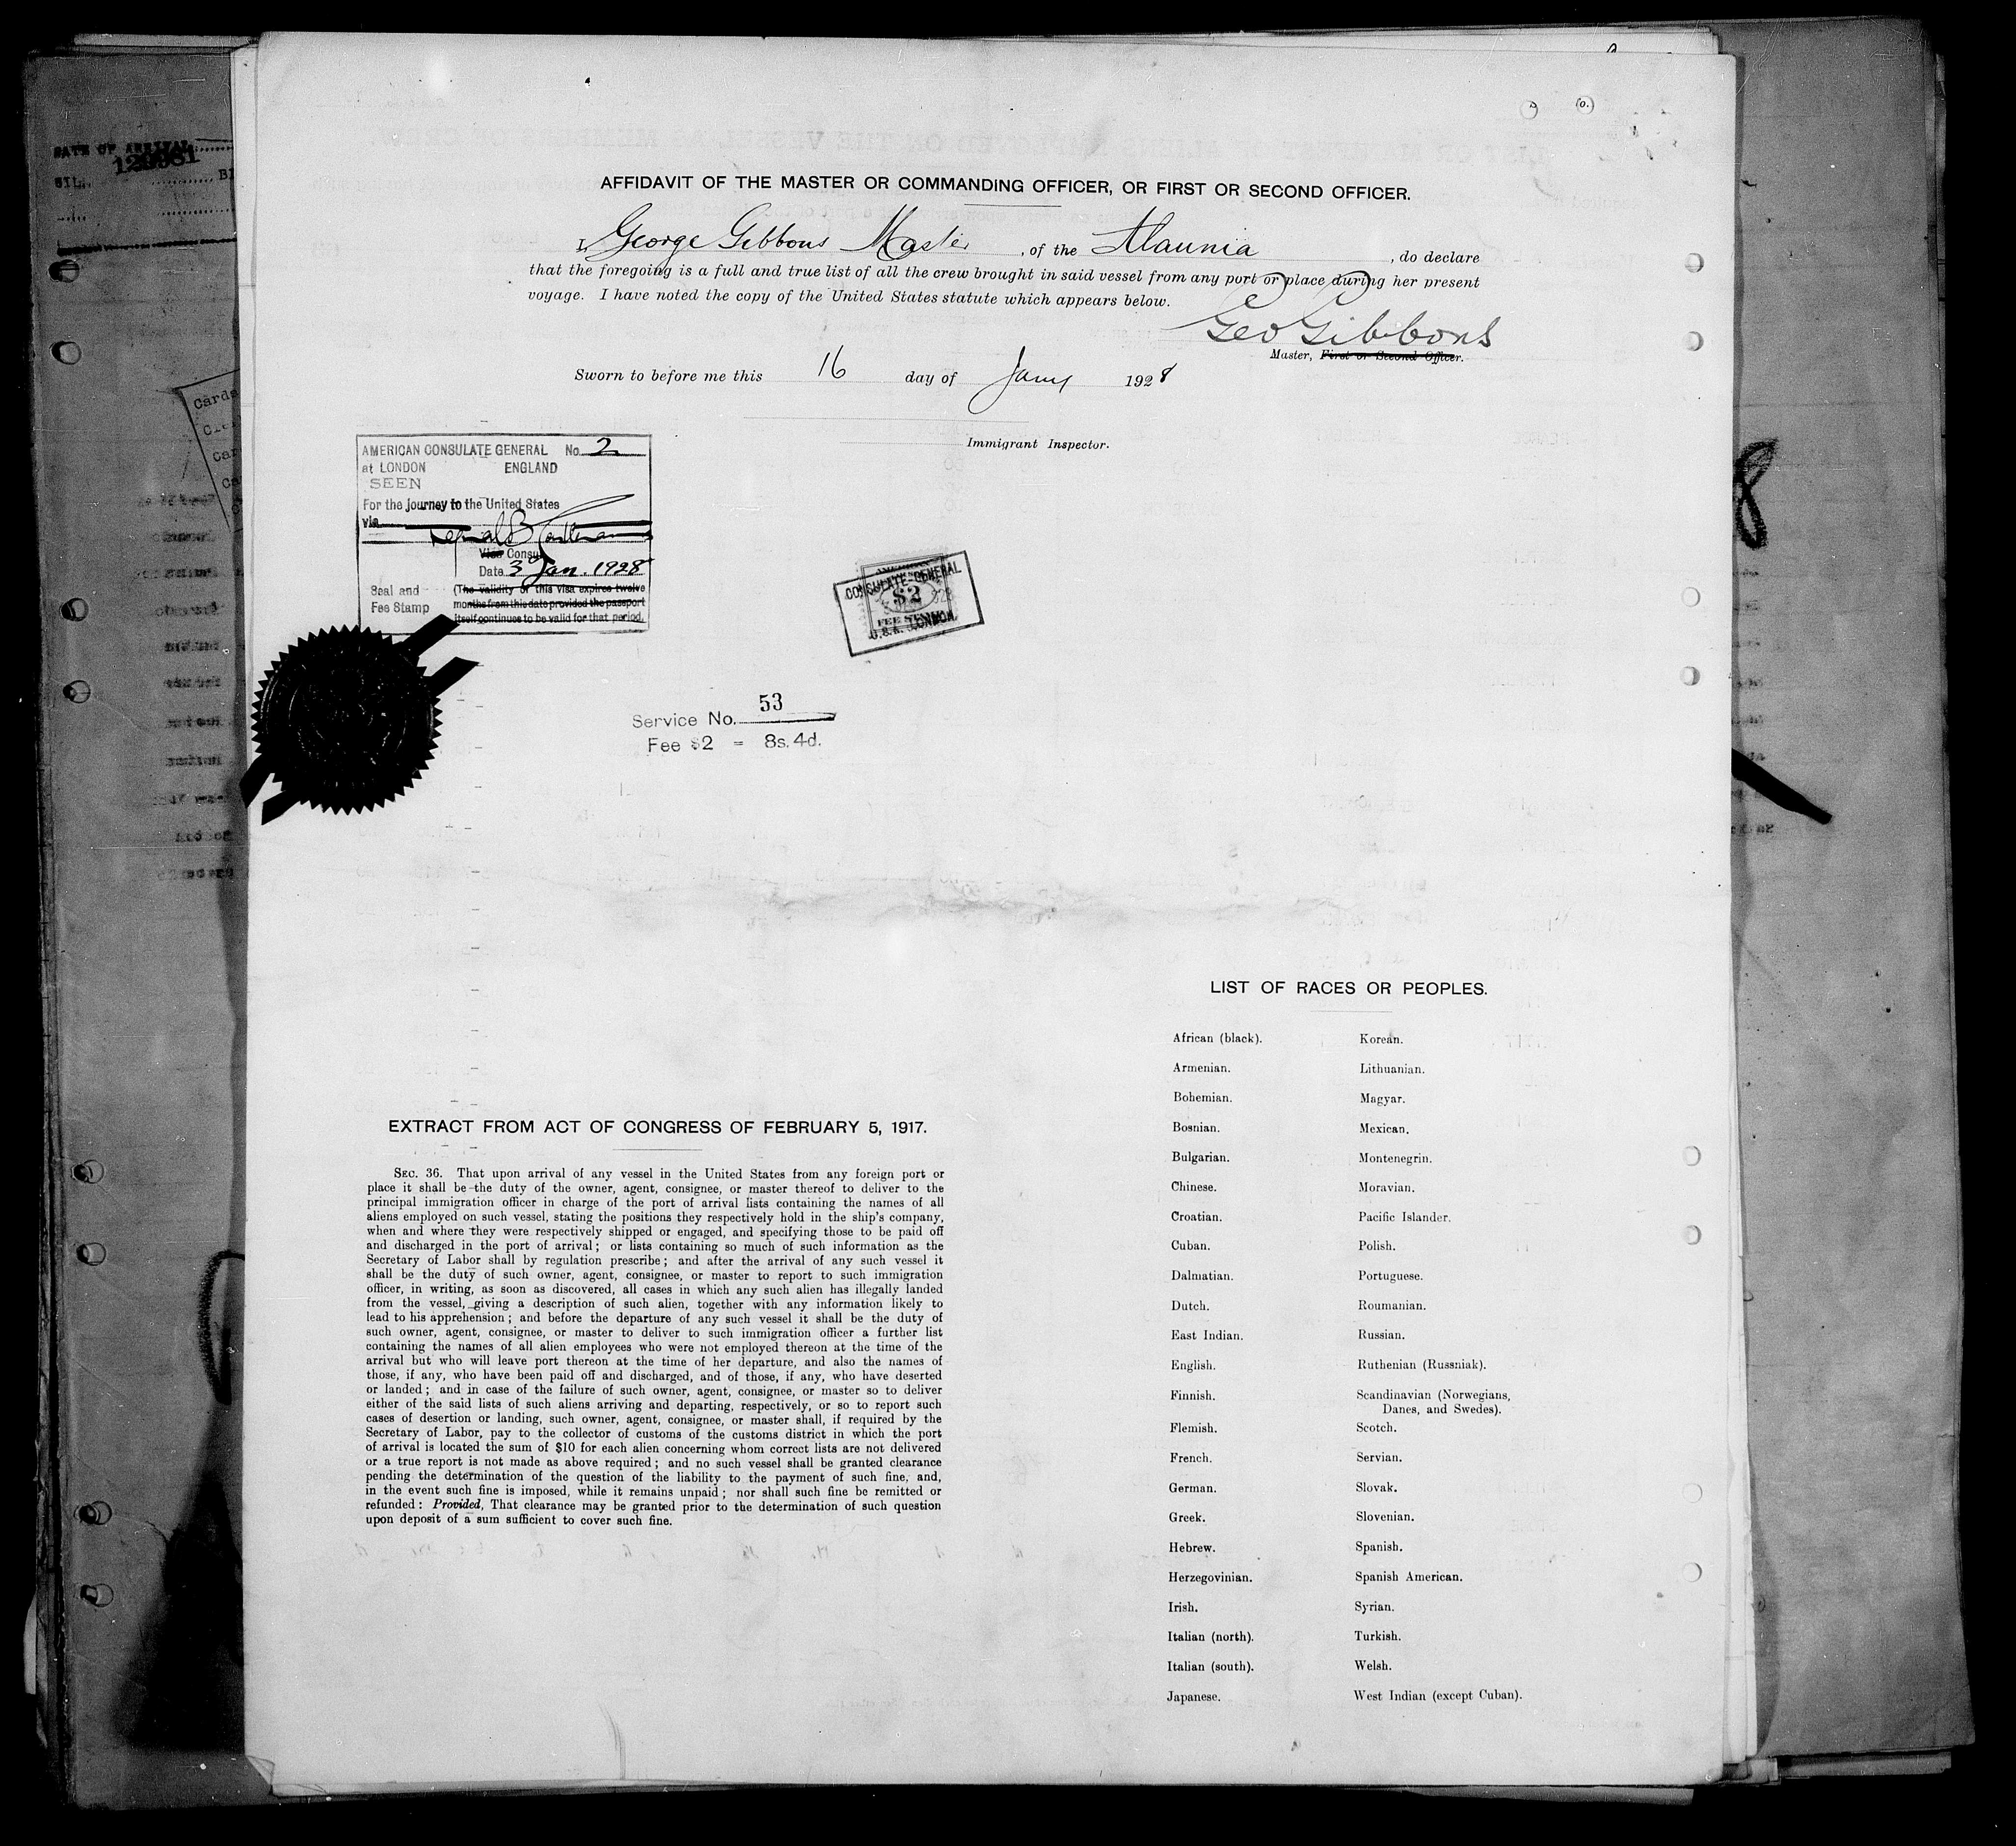 DATE OF ARRIVAL
129381
AFFIDAVIT OF THE MASTER OR COMMANDING OFFICER, OR FIRST OR SECOND OFFICER.
I, George Gibbons Master, of the Alaunia, do declare
that the foregoing is a full and true list of all the crew brought in said vessel from any port or place during her present
voyage. I have noted the copy of the United States statute which appears below.
Geo Gibbons
Master, First or Second Officer.
Sworn to before me this 16 day of Jany 1928
Immigrant Inspector.
AMERICAN CONSULATE GENERAL No. 2
at LONDON ENGLAND
SEEN
For the journey to the United States
via
Vice Consul
Date 3 Jan. 1928
Seal and
Fee Stamp
(The validity of this visa expires twelve
months from this date provided the passport
itself continues to be valid for that period.
CONSULATE-GENERAL
$2
FEE STAMP
U.S.A. LONDON
Service No. 53
Fee $2 = 8s. 4d.
LIST OF RACES OR PEOPLES.
African (black). Korean.
Armenian. Lithuanian.
Bohemian. Magyar.
Bosnian. Mexican.
Bulgarian. Montenegrin.
Chinese. Moravian.
Croatian. Pacific Islander.
Cuban. Polish.
Dalmatian. Portuguese.
Dutch. Roumanian.
East Indian. Russian.
English. Ruthenian (Russniak).
Finnish. Scandinavian (Norwegians,
Danes, and Swedes).
Flemish. Scotch.
French. Servian.
German. Slovak.
Greek. Slovenian.
Hebrew. Spanish.
Herzegovinian. Spanish American.
Irish. Syrian.
Italian (north). Turkish.
Italian (south). Welsh.
Japanese. West Indian (except Cuban).
EXTRACT FROM ACT OF CONGRESS OF FEBRUARY 5, 1917.
SEC. 36. That upon arrival of any vessel in the United States from any foreign port or
place it shall be the duty of the owner, agent, consignee, or master thereof to deliver to the
principal immigration officer in charge of the port of arrival lists containing the names of all
aliens employed on such vessel, stating the positions they respectively hold in the ship's company,
when and where they were respectively shipped or engaged, and specifying those to be paid off
and discharged in the port of arrival; or lists containing so much of such information as the
Secretary of Labor shall by regulation prescribe; and after the arrival of any such vessel it
shall be the duty of such owner, agent, consignee, or master to report to such immigration
officer, in writing, as soon as discovered, all cases in which any such alien has illegally landed
from the vessel, giving a description of such alien, together with any information likely to
lead to his apprehension; and before the departure of any such vessel it shall be the duty of
such owner, agent, consignee, or master to deliver to such immigration officer a further list
containing the names of all alien employees who were not employed thereon at the time of the
arrival but who will leave port thereon at the time of her departure, and also the names of
those, if any, who have been paid off and discharged, and of those, if any, who have deserted
or landed; and in case of the failure of such owner, agent, consignee, or master so to deliver
either of the said lists of such aliens arriving and departing, respectively, or so to report such
cases of desertion or landing, such owner, agent, consignee, or master shall, if required by the
Secretary of Labor, pay to the collector of customs of the customs district in which the port
of arrival is located the sum of $10 for each alien concerning whom correct lists are not delivered
or a true report is not made as above required; and no such vessel shall be granted clearance
pending the determination of the question of the liability to the payment of such fine, and,
in the event such fine is imposed, while it remains unpaid; nor shall such fine be remitted or
refunded: Provided, That clearance may be granted prior to the determination of such question
upon deposit of a sum sufficient to cover such fine.